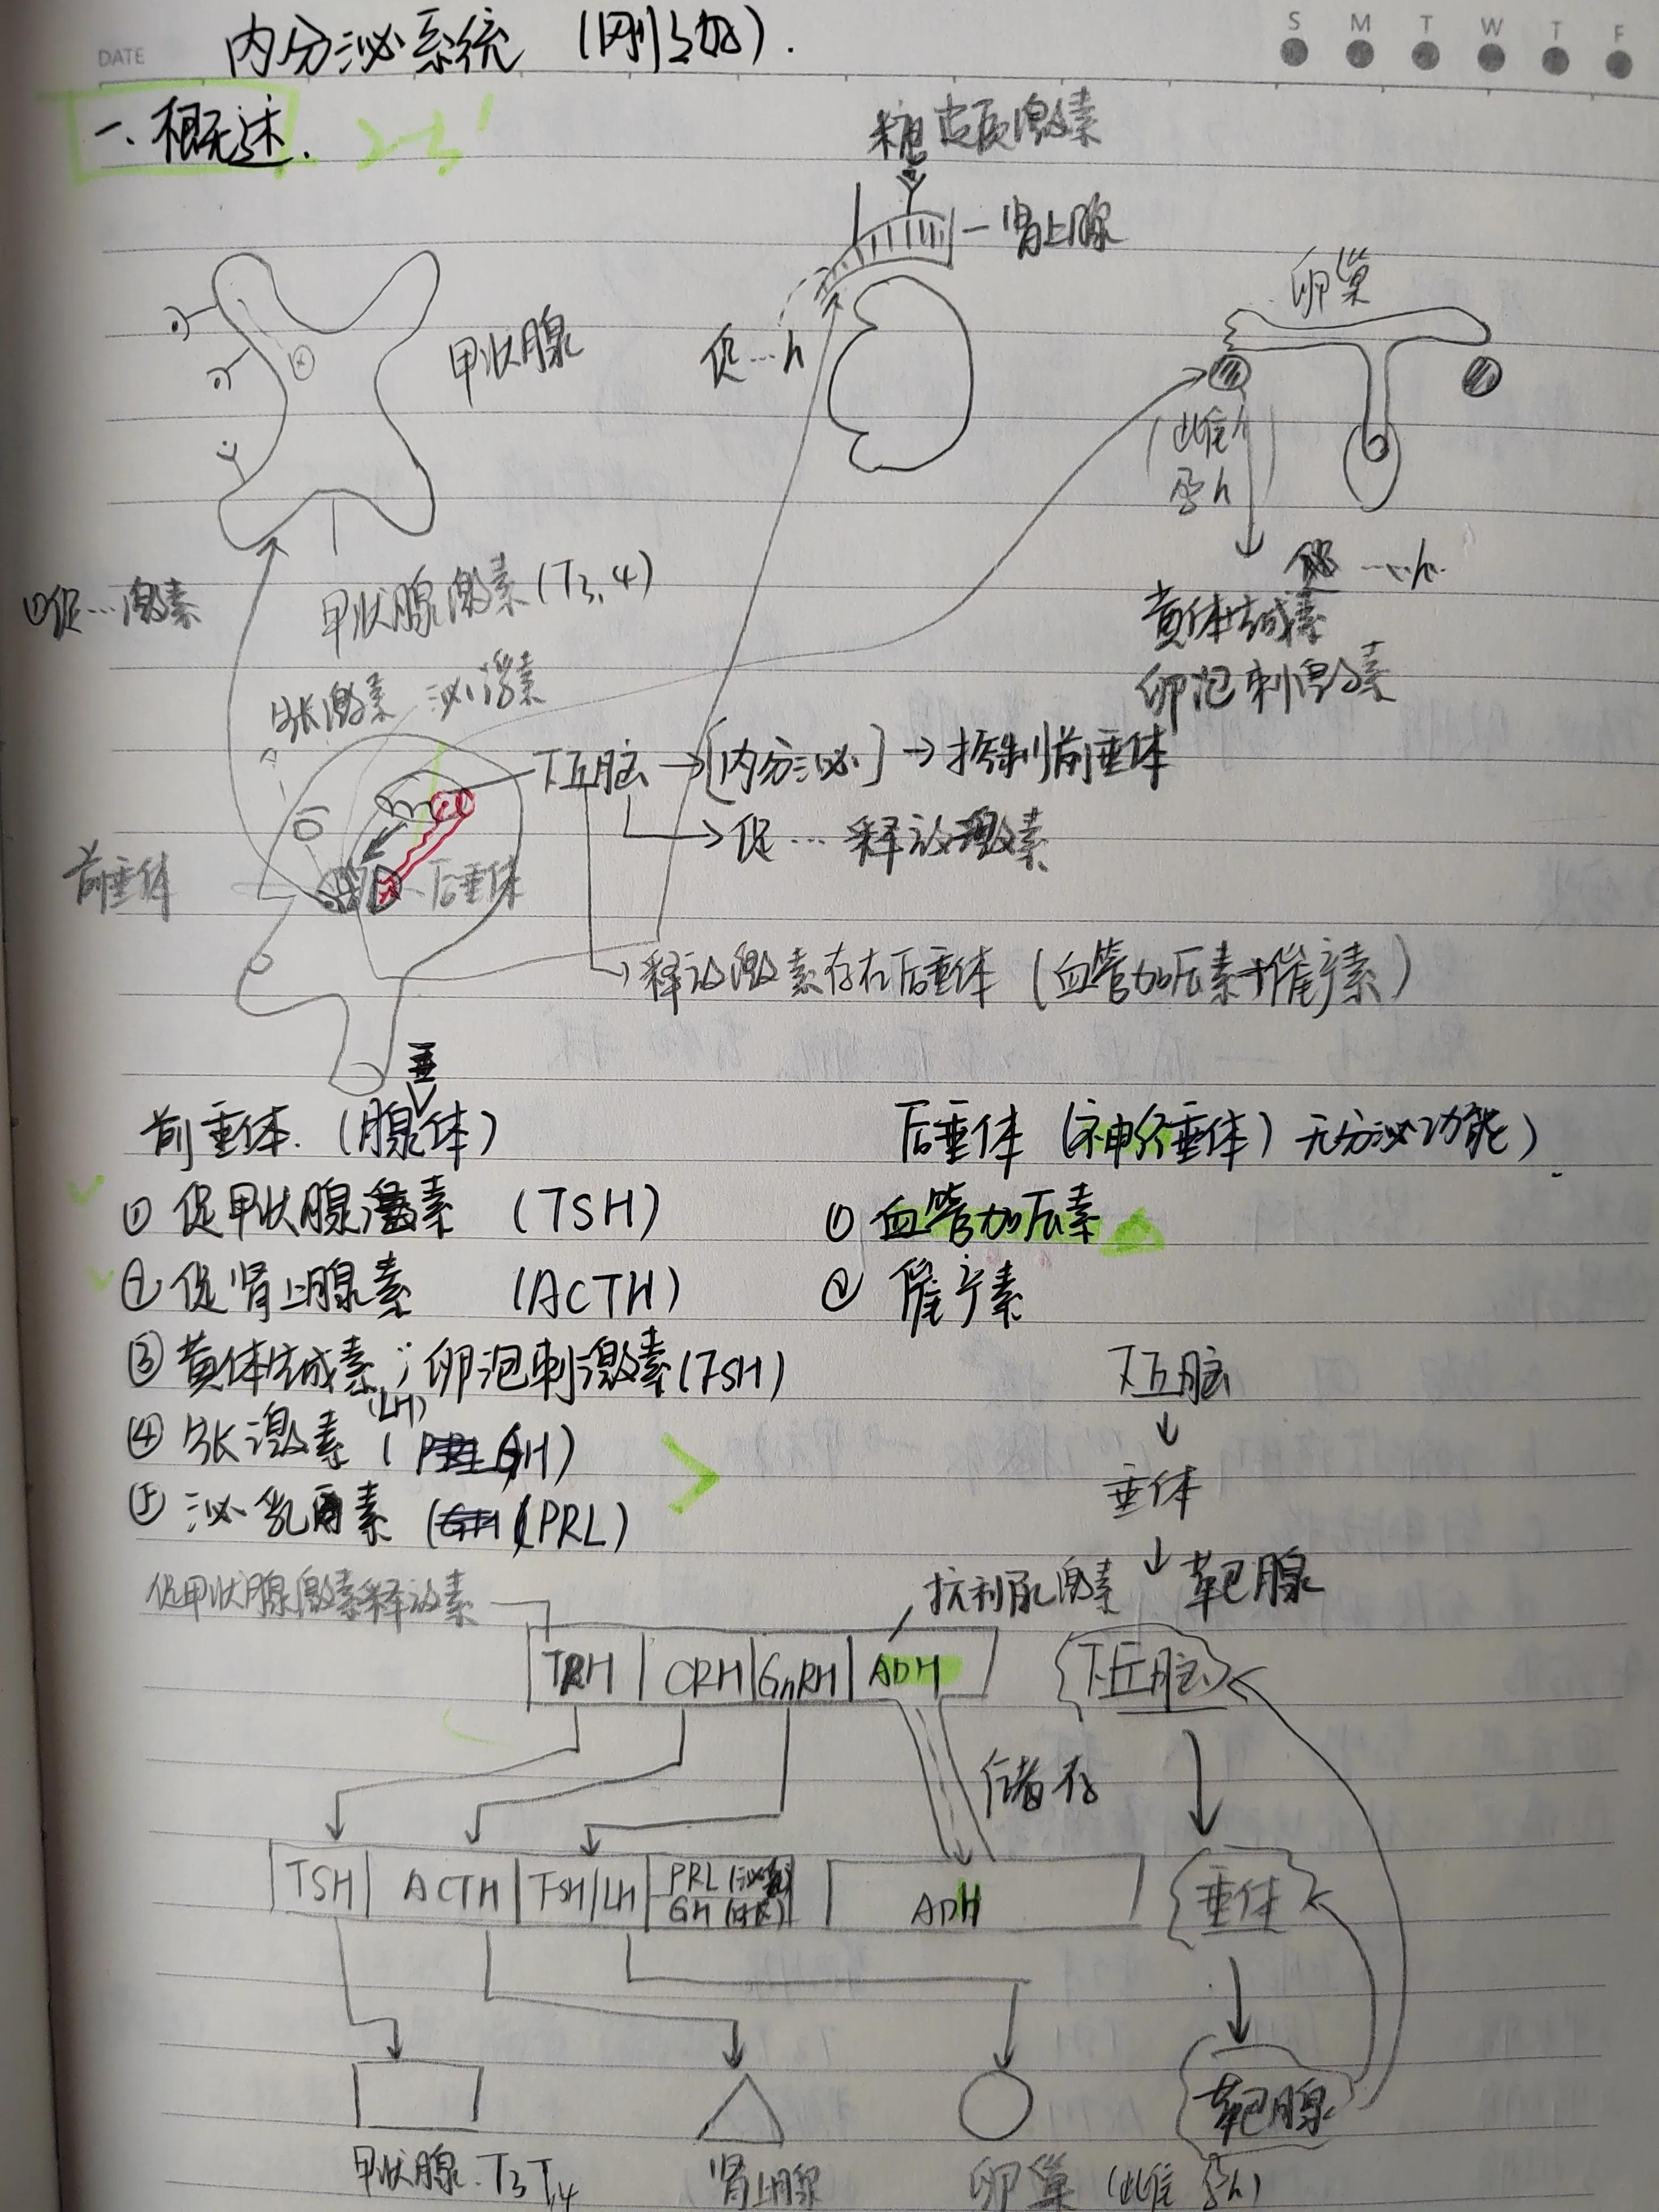 DATE
S M T W T F
内分泌系统
一、概述.
糖皮质激素
肾上腺
卵巢
甲状腺
促…h
(雌h
孕h)
①促…激素
甲状腺激素(T3,4)
…h.
黄体生成素
卵泡刺激素
生长激素 泌激素
下丘脑→[内分泌]→控制前垂体
→促…释放激素
前垂体
后垂体
→释放激素存在后垂体(血管加压素+催产素)
垂
前垂体.(腺体)
后垂体(神经垂体)无分泌功能)
①促甲状腺激素 (TSH)
①血管加压素
②促肾上腺素 (ACTH)
②催产素
③黄体生成素;卵泡刺激素(FSH)
(LH)
下丘脑
↓
④生长激素(GH)
垂体
⑤泌乳素(PRL)
↓靶腺
促甲状腺激素释放素
抗利尿激素
TRH CRH GnRH ADH
下丘脑
储存
TSH ACTH FSH/LH PRL(泌乳) GH(生长) ADH
垂体
靶腺
甲状腺.T3 T4
肾上腺
卵巢(雌 孕h)